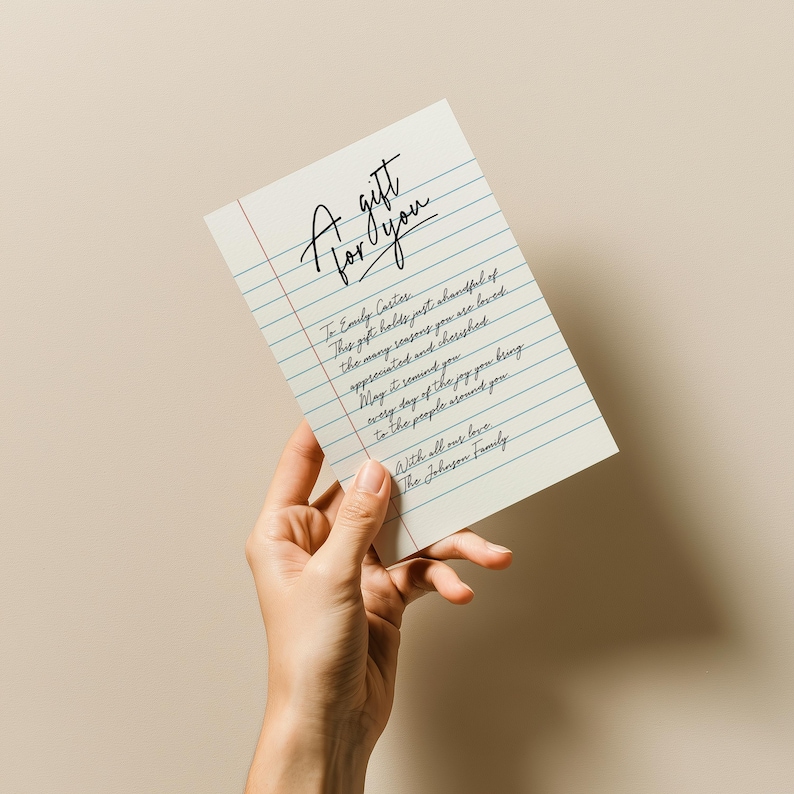 A gift
for you
To Emily Carter,
This gift holds just ahandful of
the many reasons you are loved,
appreciated and cherished.
May it remind you
every day of the joy you bring
to the people around you.
With all our love,
The Johnson Family